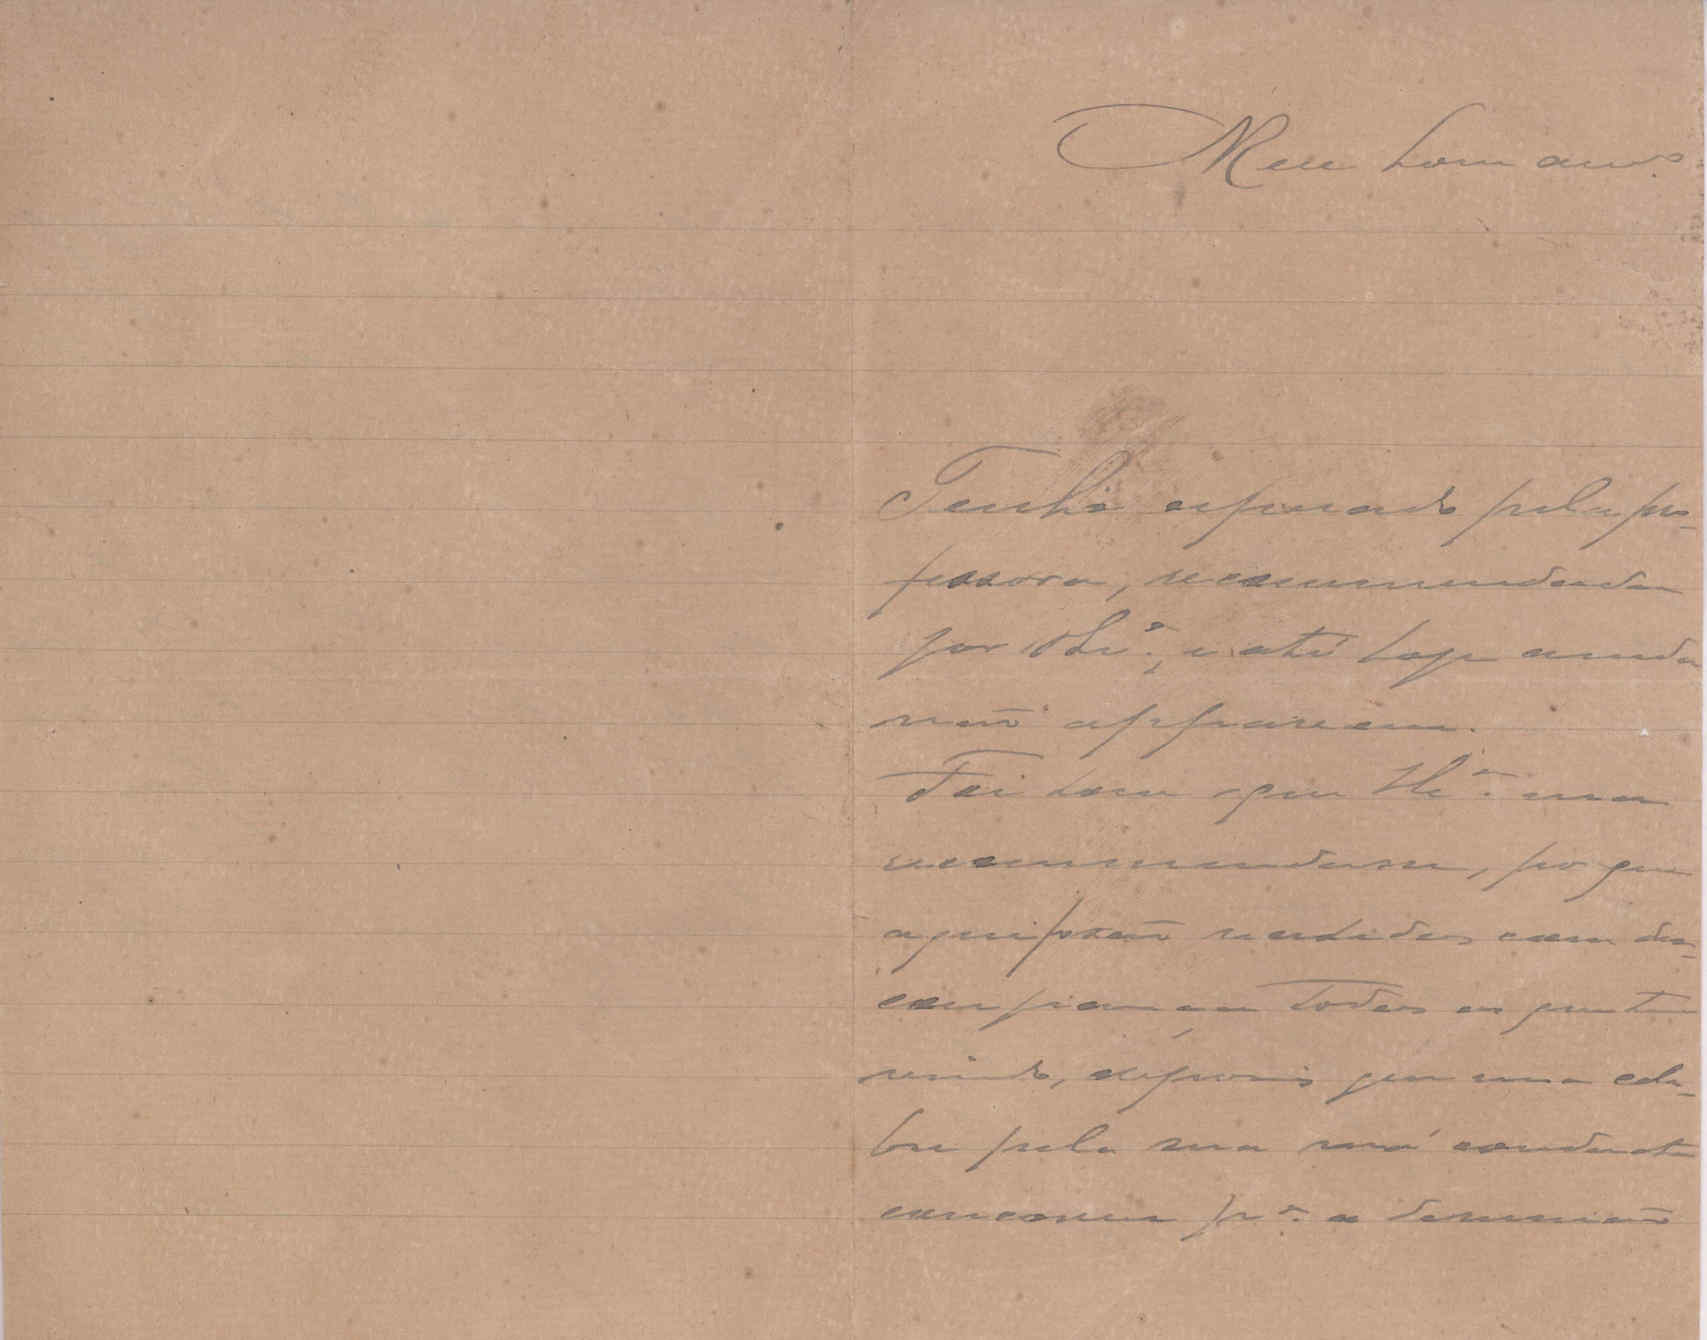 Meu bom amo.
Tenho esperado pela pro-
fessora, recommendada
por Vce.ª, e até hoje ainda
não appareceu.
Foi bom que Vce.ª m'a
recommendasse, por que
aqui são recebidas com des-
confiança todas as que tem
vindo, depois que uma cele-
bre pela sua má conducta
concorreu pr.ª a demissão